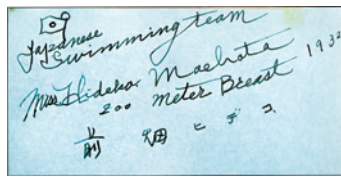 Japanese
Swimming team
Miss Hideko Maehata
200 meter Breast 1932
前畑ヒデコ